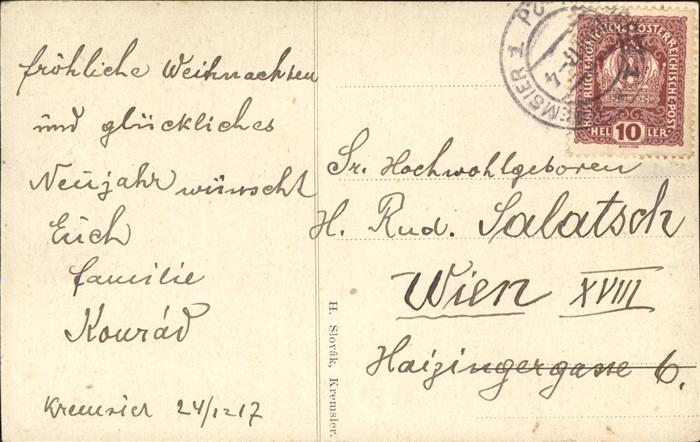 fröhliche Weihnachten
und glückliches
Neujahr wünscht
Euch
familie
Konrád
Kremsier 24/12 17
H. Slovák, Kremsier.
KREMSIER 1
KAISERLICHE KÖNIGLICHE ÖSTERREICHISCHE POST
HELLER
10
Sr. Hochwohlgeboren
H. Rud. Salatsch
Wien XVIII
Haizingergasse 6.